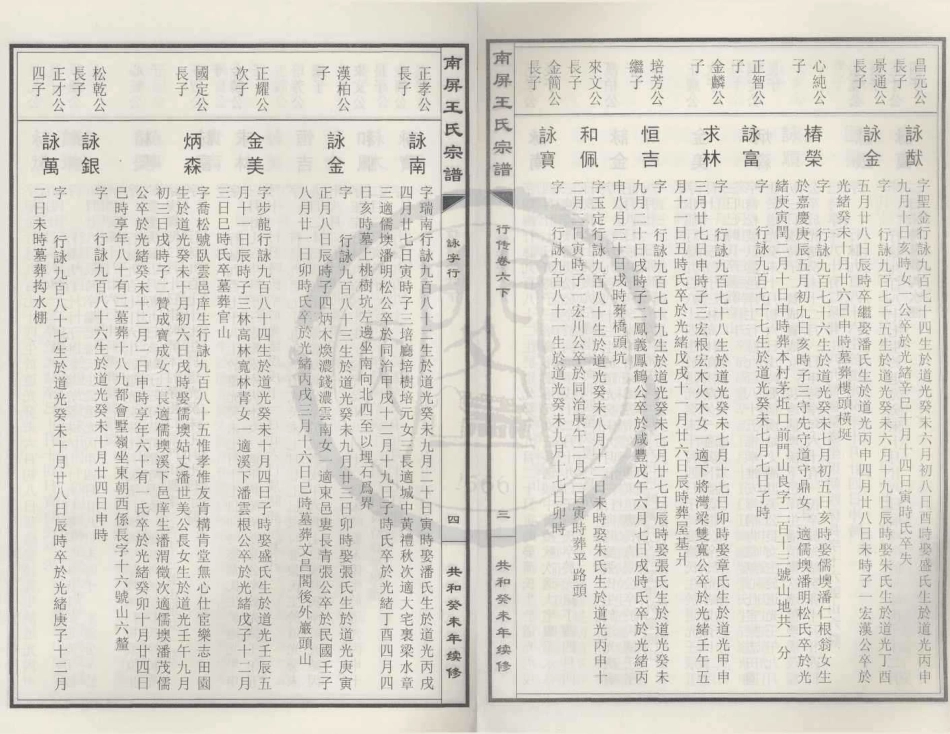 昌元公
長子
詠猷
字聖金行詠九百七十四生於道光癸未六月初八日酉時娶盛氏生於道光丙申
九月一日亥時女一公卒於光緒辛巳十月十四日寅時氏卒失
景通公
長子
詠金
字　行詠九百七十五生於道光癸未六月十九日辰時娶朱氏生於道光丁酉
五月廿八日辰時卒繼娶潘氏生於道光丙申四月廿八日未時子一宏漢公卒於
光緒癸未十月廿六日申時墓葬樓頭橫埏
心純公
子
椿榮
字　行詠九百七十六生於道光癸未七月初五日亥時娶儒墺潘仁根翁女生
於嘉慶庚辰五月初九日亥時子三守先守道守鼎女一適儒墺潘明松氏卒於光
緒庚寅閏二月十日申時葬本村茅坵口前門山良字二百十三號山地共一分
正智公
子
詠富
字　行詠九百七十七生於道光癸未七月七日子時
金麟公
子
求林
字　行詠九百七十八生於道光癸未七月十七日卯時娶章氏生於道光甲申
三月廿七日申時子三宏根宏木火木女一適下將灣梁雙寬公卒於光緒壬午五
月十一日丑時氏卒於光緒戊戌十一月廿六日辰時葬屋基爿
培芳公
繼子
恒吉
字　行詠九百七十九生於道光癸未七月廿七日辰時娶張氏生於道光癸未
九月二十日戌時子二鳳義鳳鶴公卒於咸豐戊午六月七日戌時氏卒於光緒丙
申八月二十日戌時葬橋頭坑
來文公
長子
和佩
字玉定行詠九百八十生於道光癸未八月十二日未時娶朱氏生於道光丙申十
二月二日寅時子一宏川公卒於同治庚午二月二日寅時葬平路頭
金簡公
長子
詠寶
字　行詠九百八十一生於道光癸未九月十七日卯時
南屏王氏宗譜
行传卷六下
三
共和癸未年续修
南屏王氏宗譜
詠字行
四
共和癸未年续修
正孝公
長子
詠南
字瑞南行詠九百八十二生於道光癸未九月二十日寅時娶潘氏生於道光丙戌
四月廿七日寅時子三培廳培樹培元女三長適城中黃禮秋次適大宅裏梁水章
三適儒墺潘明松公卒於同治甲戌十二月十九日子時氏卒於光緒丁酉四月四
日亥時墓上桃樹坑左邊坐南向北四至以埋石爲界
漢柏公
子
詠金
字　行詠九百八十三生於道光癸未九月廿三日卯時娶張氏生於道光庚寅
正月八日辰時子四炳木煥濃錢濃雲南女一適東邑婁長青張公卒於民國壬子
八月廿一日卯時氏卒於光緒丙戌三月十六日巳時墓葬文昌閣後外巖頭山
正耀公
次子
金美
字步龍行詠九百八十四生於道光癸未十月四日子時娶盛氏生於道光壬辰五
月十一日辰時子三林高林寬林青女一適溪下潘雲根公卒於光緒戊子十二月
三日巳時氏卒墓葬官山
國定公
長子
炳森
字喬松號臥雲邑庠生行詠九百八十五惟孝惟友肯構肯堂無心仕宦樂志田園
生於道光癸未十月初六日戌時娶儒墺姑丈潘世美公長女生於道光壬午九月
初三日戌時子二贊成寶成女二長適儒墺溪下邑庠生潘渭徵次適儒墺潘茂儒
公卒於光緒癸未十二月一日申時享年六十有一氏卒於光緒癸卯十月廿四日
巳時享年八十有二墓葬十八九都會墅嶺坐東朝西係長字十六號山六釐
松乾公
長子
詠銀
字　行詠九百八十六生於道光癸未十月廿四日申時
正才公
四子
詠萬
字　行詠九百八十七生於道光癸未十月廿八日辰時卒於光緒庚子十二月
二日未時墓葬抅水棚